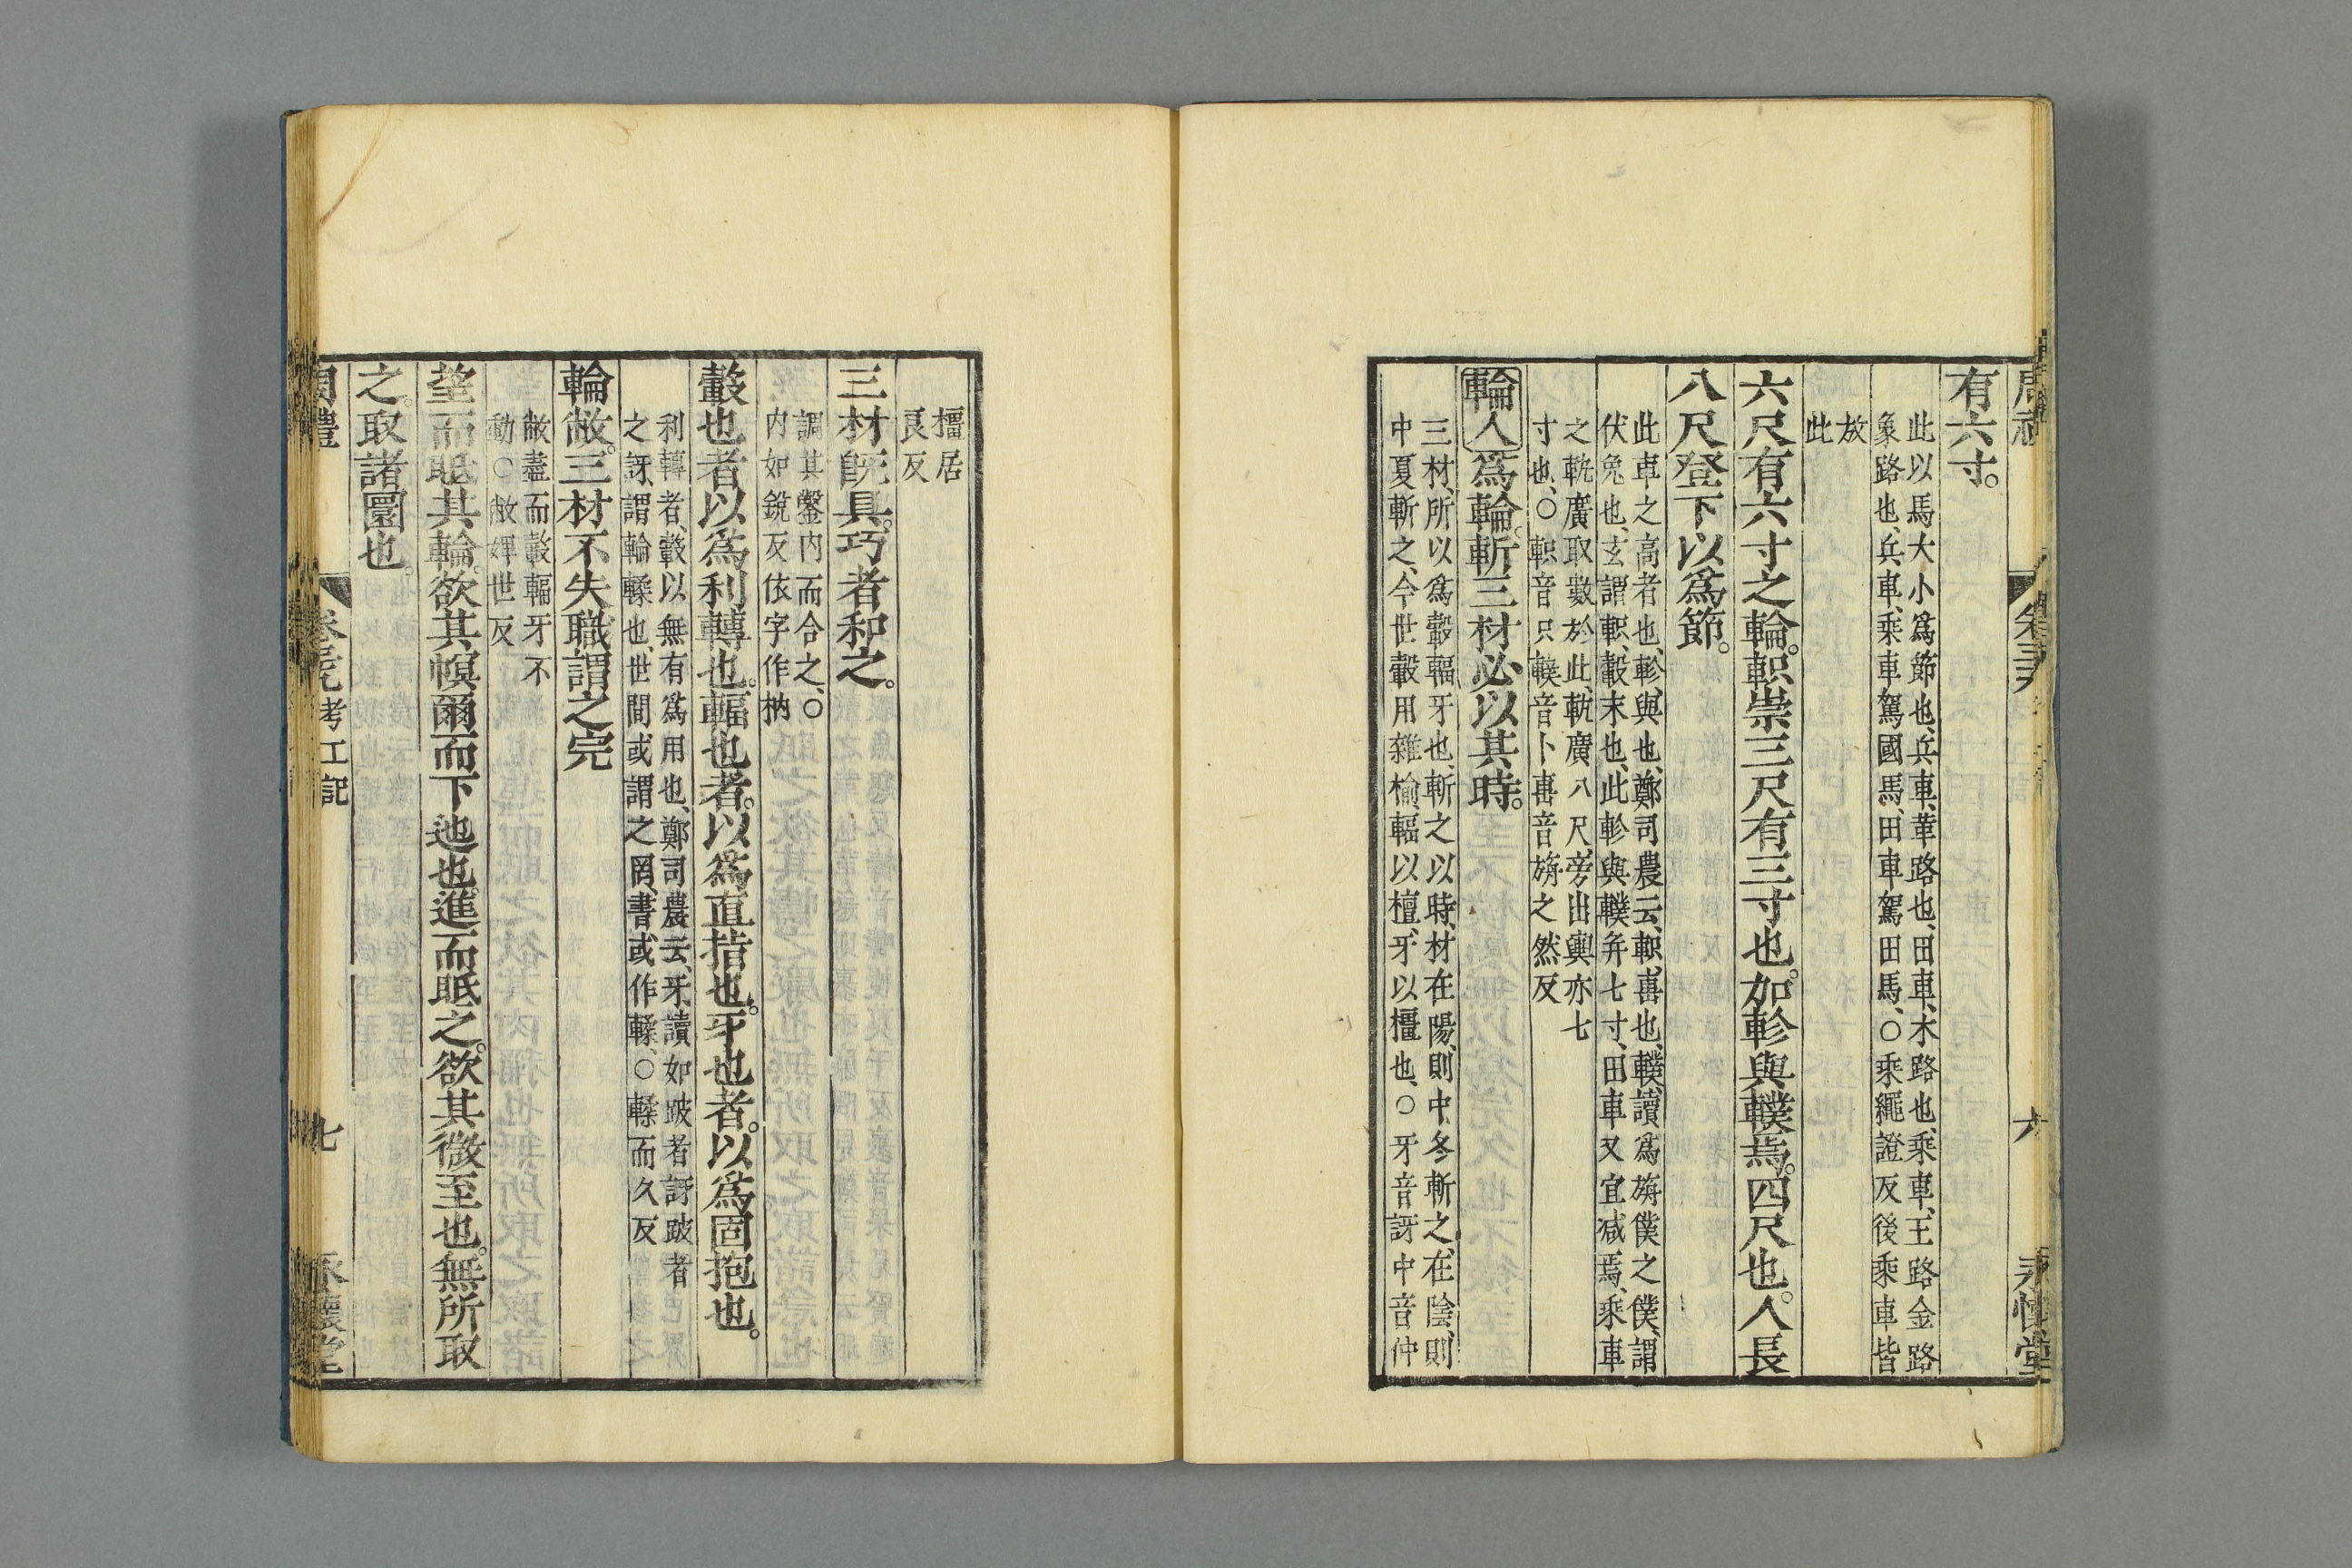 有六寸。
此以馬大小爲節也、兵車、革路也、田車、木路也、乘車、王路金路
象路也、兵車、乘車、駕國馬、田車駕田馬、○乘繩證反後乘車皆
放
此
六尺有六寸之輪。軹崇三尺有三寸也。加軫與轐焉。四尺也。人長
八尺登下以爲節。
此車之高者也、軫、與也、鄭司農云、軹、𨊻也、轐、讀爲旃僕之僕、謂
伏兔也、玄謂軹、轂末也、此軫與轐幷七寸、田車又宜减焉、乘車
之軌廣取數於此、軌廣八尺、旁出輿亦七
寸也、○軹音只轐音卜𨊻音旃之然反
輪人爲輪。斬三材必以其時。
三材、所以爲轂輻牙也、斬之以時、材在陽、則中冬斬之、在陰、則
中夏斬之、今世轂用雜榆、輻以檀、牙以橿也、○牙音訝中音仲
橿居
良反
三材旣具。巧者和之。
調其鑿内而合之、○
内如銳反依字作枘
轂也者以爲利轉也。輻也者。以爲直指也。牙也者。以爲固抱也。
利轉者、轂以無有爲用也、鄭司農云、牙、讀如跛者訝跛者
之訝、謂輪輮也、世間或謂之罔、書或作輮、○輮而久反
輪敝。三材不失職。謂之完
敝盡而轂輻牙不
動○敝婢世反
望而眡其輪。欲其幎爾而下迆也。進而眡之。欲其微至也。無所取
之。取諸圜也。
周禮
卷三九考工記
七
永懷堂